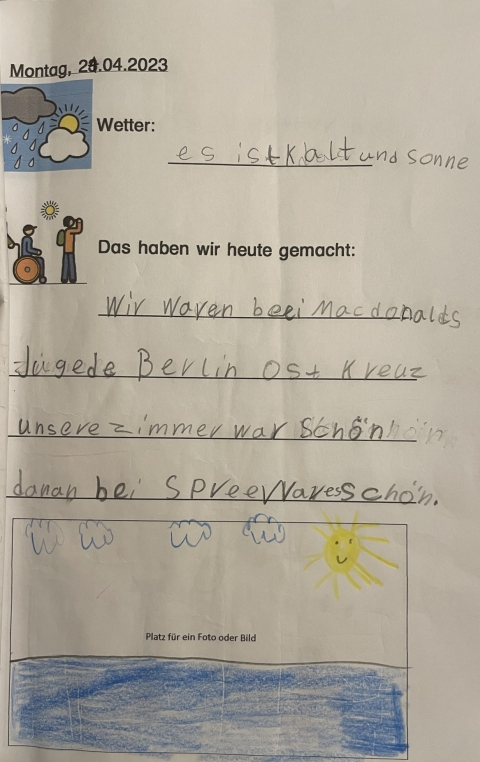 Montag, 24.04.2023
Wetter:
es ist kalt und Sonne
Das haben wir heute gemacht:
Wir waren beei Macdonalds
Jugede Berlin Ost Kreuz
unsere zimmer war Schön
danan bei Spree Wares Schön.
Platz für ein Foto oder Bild